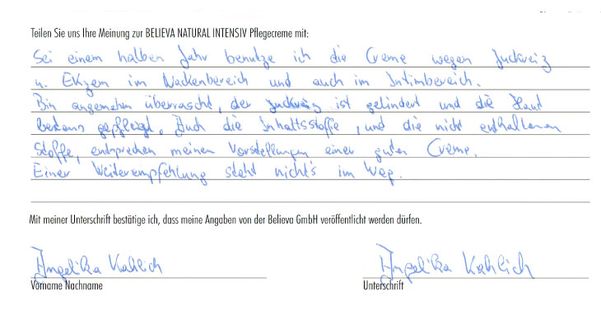 Teilen Sie uns Ihre Meinung zur BELIEVA NATURAL INTENSIV Pflegecreme mit:
Sei einem halben Jahr benutze ich die Creme wegen Juckreiz
u. Ekzem im Nackenbereich und auch im Intimbereich.
Bin angenehm überrascht, der Juckreiz ist gelindert und die Haut
bestens gepflegt. Auch die Inhaltsstoffe, und die nicht enthaltenen
Stoffe, entsprechen meinen Vorstellungen einer guten Creme.
Einer Weiterempfehlung steht nichts im Weg.
Mit meiner Unterschrift bestätige ich, dass meine Angaben von der Believa GmbH veröffentlicht werden dürfen.
Angelika Kahlich Angelika Kahlich
Vorname Nachname Unterschrift